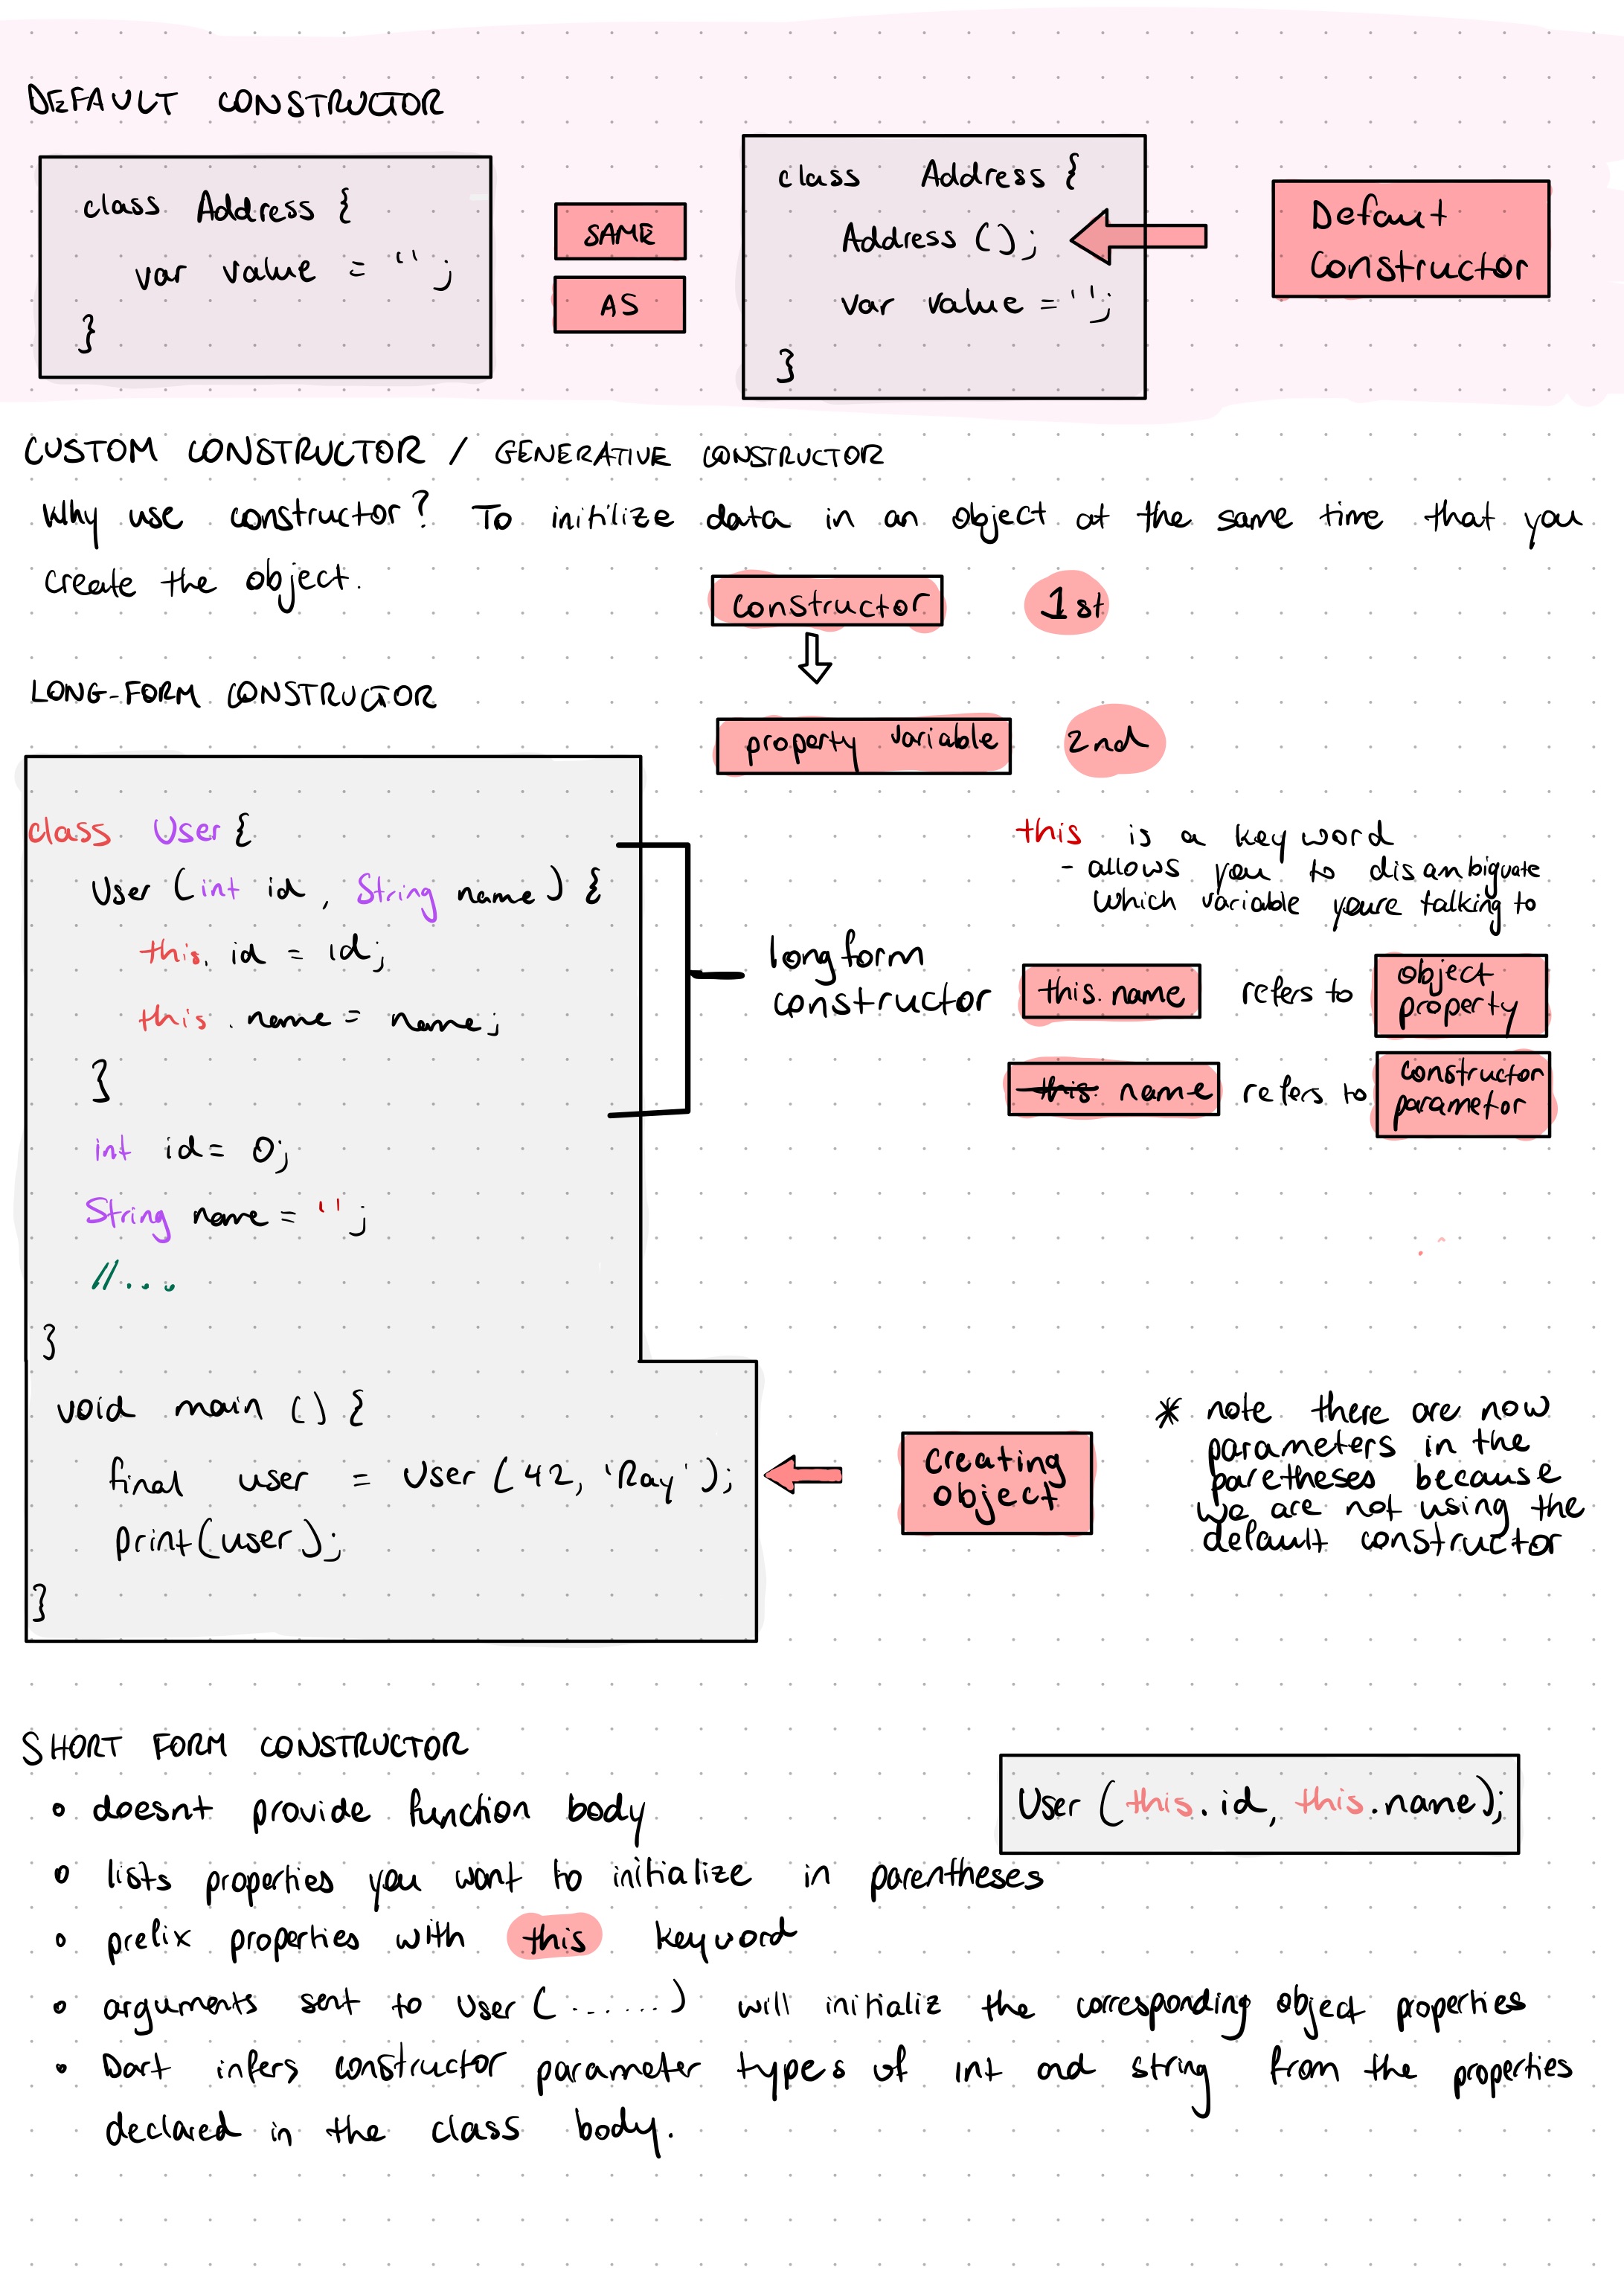 DEFAULT CONSTRUCTOR
class Address {
var value = '';
}
SAME
AS
class Address {
Address ();
var value = '';
}
Defaut
Constructor
CUSTOM CONSTRUCTOR / GENERATIVE CONSTRUCTOR
Why use constructor? To initilize data in an object at the same time that you
create the object.
constructor 1st
property variable 2nd
LONG-FORM CONSTRUCTOR
class User {
User (int id, String name) {
this. id = id;
this. name = name;
}
int id = 0;
String name = '';
//...
}
void main () {
final user = User (42, 'Ray');
print(user);
}
longform
constructor
this is a keyword
- allows you to disambiguate
which variable youre talking to
this. name refers to object
property
this. name refers to constructor
parametor
Creating
Object
* note there are now
parameters in the
paretheses because
we are not using the
default constructor
SHORT FORM CONSTRUCTOR
User (this. id, this.name);
• doesnt provide function body
• lists properties you want to initialize in parentheses
• prefix properties with this keyword
• arguments sent to User (......) will initializ the corresponding object properties
• Dart infers constructor parameter types of int and string from the properties
declared in the class body.